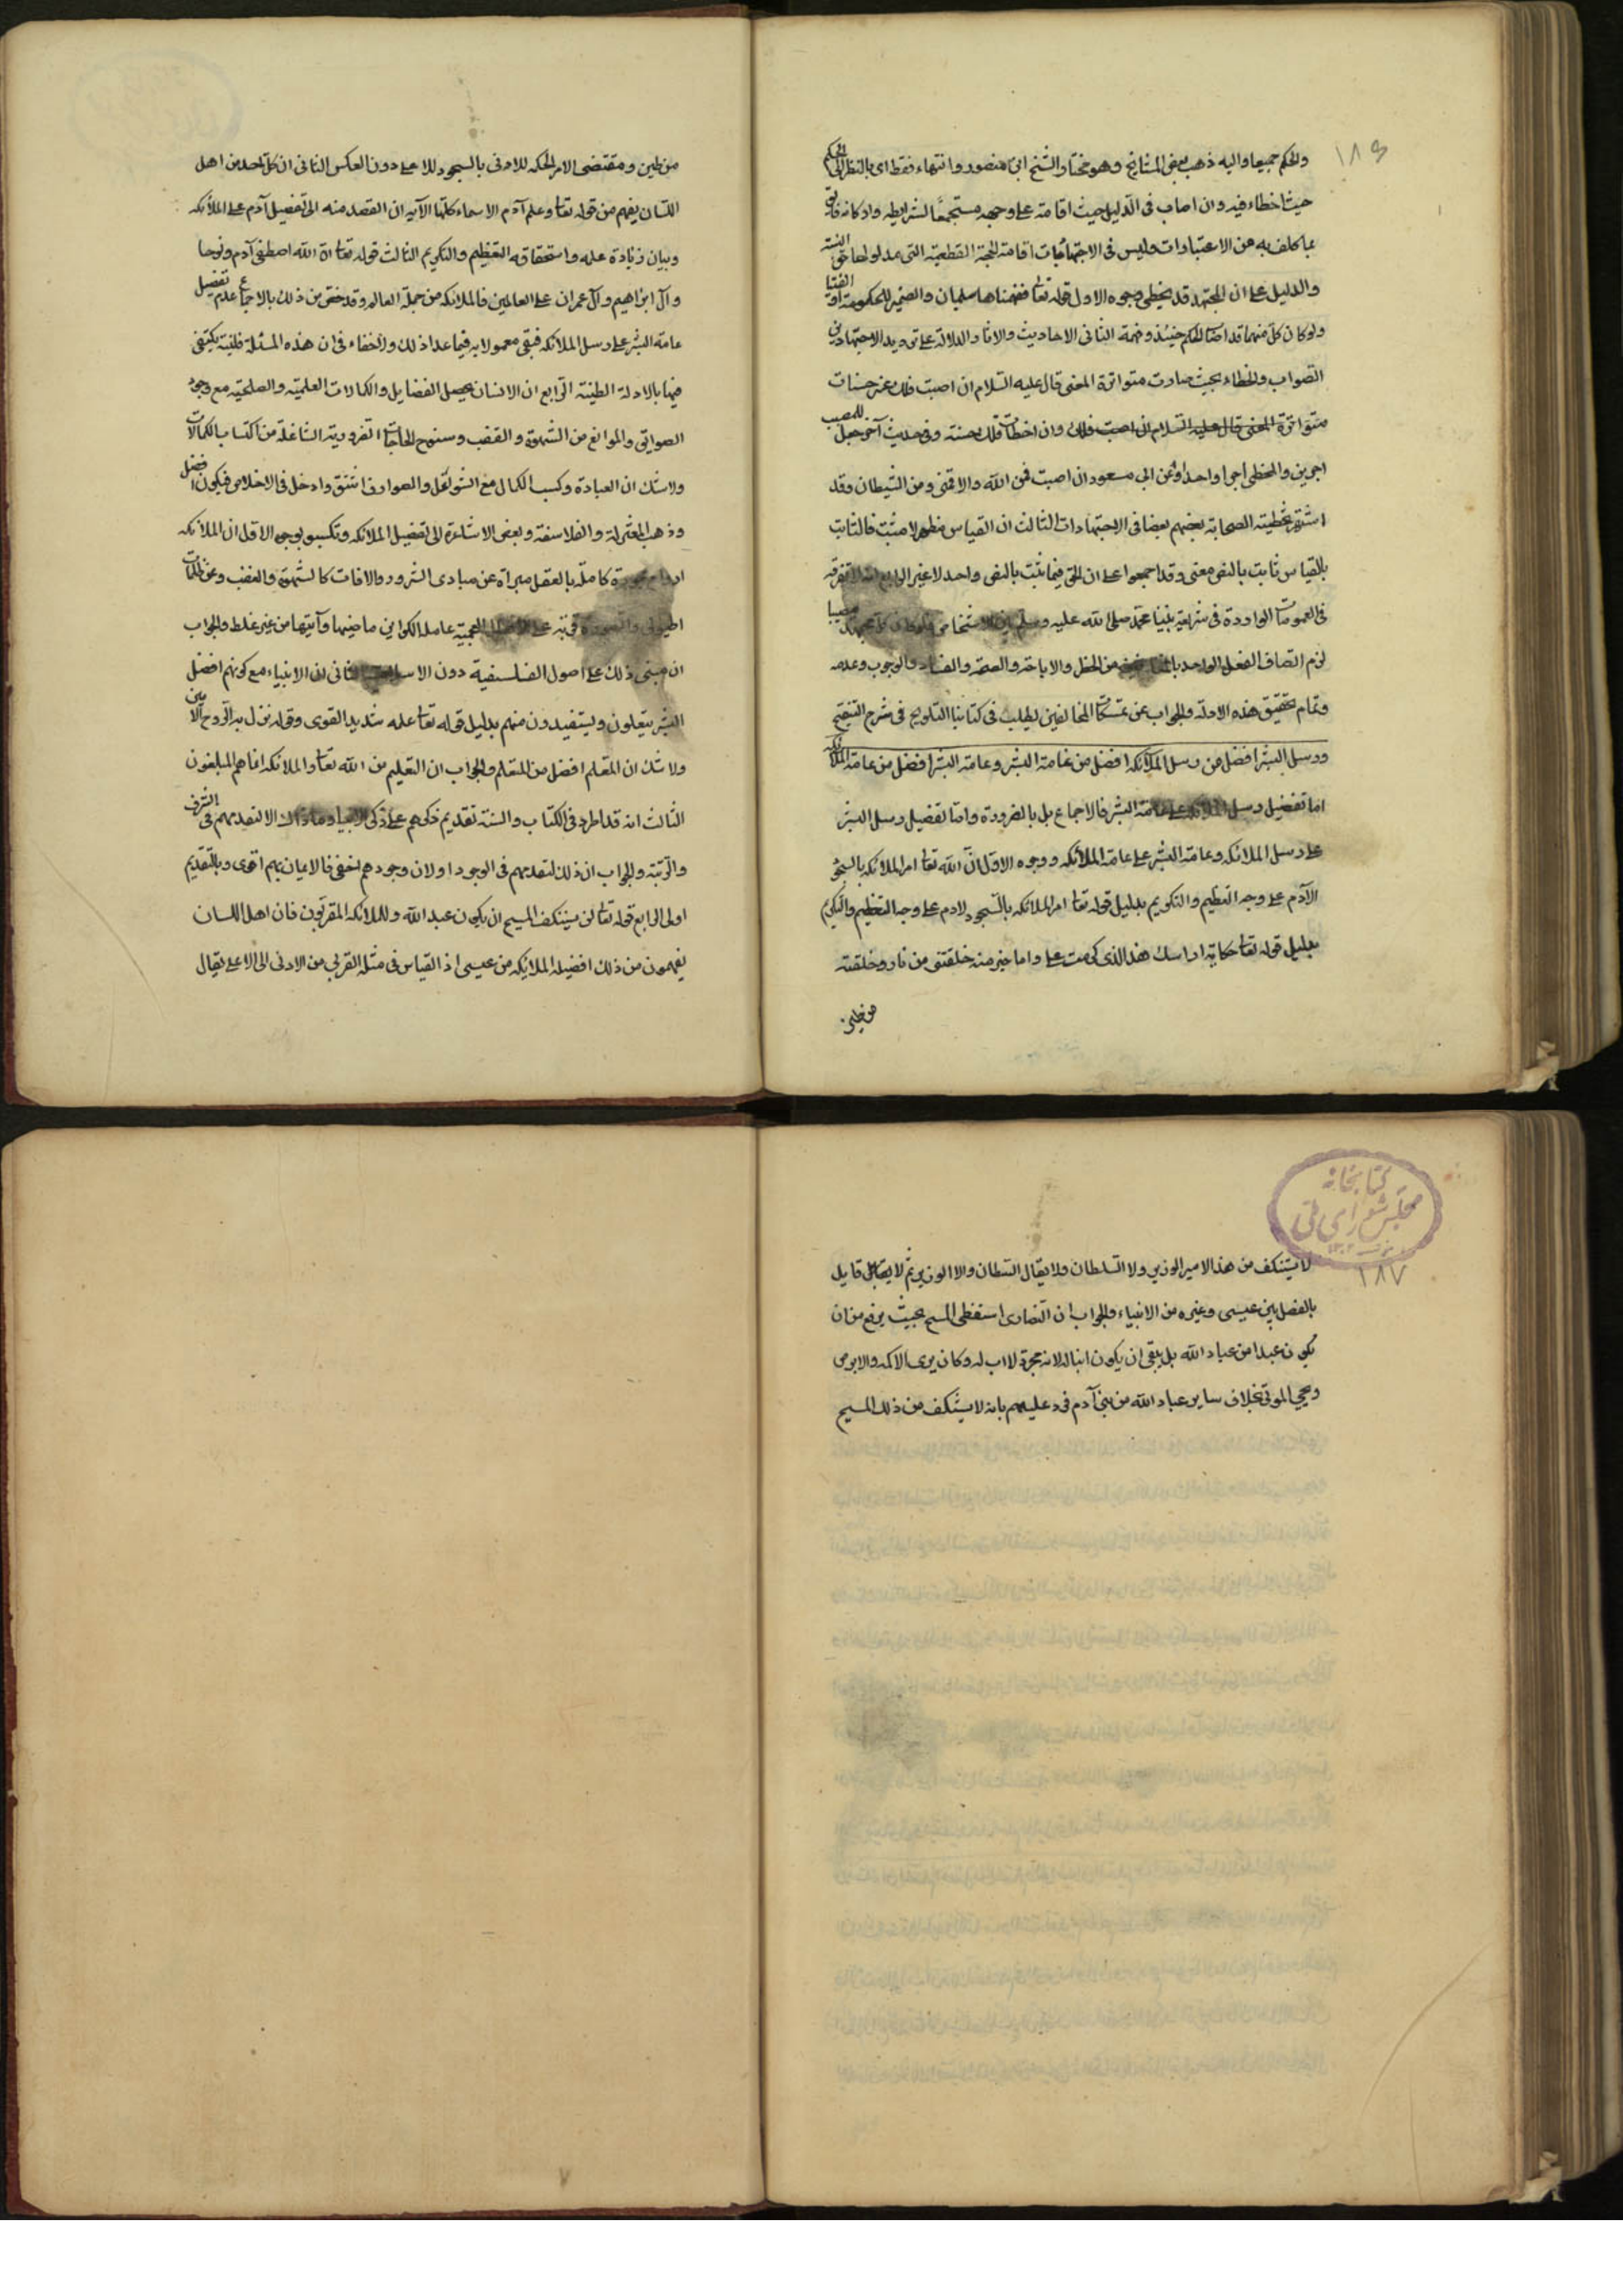 ۱۸۶
والحكم جميعا واليه ذهب بعض المشايخ وهو مختار الشيخ ابى منصور وانتهاء فقط اى بالنظر الى الحكم
حيث اخطاء فيه وان اصاب فى الدليل حيث اقامته على وجهه مستجمعًا لشرايطه واركانه فاتى
بما كلف به من الاعتبارات وليس فى الاجتهاديات اقامة الحجة القطعية التى مدلولها حق البتة
والدليل على ان المجتهد قد يخطى وجوه الاول قوله تعا ففهمناها سليمان والضمير للحكومة او الفتيا
ولو كان كل منهما قد اصاب الحكم حينئذ وفهمه الثانى الاحاديث والاثار الدالة على ترديد الاجتهاد بين
الصواب والخطاء بحيث صارت متواترة المعنى قال عليه السلام ان اصبت فلك عشر حسنات
متواترة المعنى قال عليه السلام ان اصبت فلك وان اخطأت فلك حسنة وفى حديث آخر جعل للمصيب
اجرين والمخطى اجرا واحدا وعن ابى مسعود ان اصبت فمن الله والا فمنى ومن الشيطان وقد
اشتهر تخطية الصحابة بعضهم بعضا فى الاجتهادات الثالث ان القياس مظهر لا مثبت فالثابت
بالقياس ثابت بالنص معنى وقد اجمعوا على ان الحق فيما ثبت بالنص واحد لا غير الرابع انه لا تفرقة
فى العمومات الواردة فى شريعة نبينا محمد صلى الله عليه وسلم بين الاشخاص فلو كان كل مجتهد مصيبا
لزم اتصاف الفعل الواحد بالمتنافيين من الحظر والاباحة والصحة والفساد والوجوب وعدمه
وتمام تحقيق هذه الادلة والجواب عن تمسكات المخالفين يطلب فى كتابنا التلويح فى شرح التنقيح
ورسل البشر افضل من رسل الملائكة افضل من عامة البشر وعامة البشر افضل من عامة الملائكة
اما تفضيل رسل الملائكة على عامة البشر فالاجماع بل بالضرورة واما تفضيل رسل البشر
على رسل الملائكة وعامة البشر على عامة الملائكة ووجوه الاول ان الله تعا امر الملائكة بالسجود
الآدم على وجه التعظيم والتكريم بدليل قوله تعا امر الملائكة بالسجود لادم على وجه التعظيم والتكريم
بدليل قوله تعا حكاية اراسك هذا الذى كرمت على واما خير منه خلقتنى من نار وخلقته
من طين
من طين ومقتضى الامر الحكمه للادنى بالسجود للاعلى دون العكس الثانى ان كل احد من اهل
اللسان يفهم من قوله تعا وعلم آدم الاسماء كلها الآية ان القصد منه الى تفضيل آدم على الملائكه
وبيان زيادة علمه واستحقاقه التعظيم والتكريم الثالث قوله تعا ان الله اصطفى آدم ونوحا
وآل ابراهيم وآل عمران على العالمين فالملائكه من جملة العالم وقد خص من ذلك بالاجماع عدم تفضيل
عامة البشر على رسل الملائكه فبقى معمولا به فيما عدا ذلك ولا خفاء فى ان هذه المسئلة ظنية يكتفى
فيها بالادلة الظنية الرابع ان الانسان يحصل الفضايل والكمالات العلمية والعملية مع وجود
العوايق والموانع من الشهوة والغضب وسنوح الحاجات الضرورية الشاغلة من اكتساب الكمالات
ولا شك ان العبادة وكسب الكمال مع الشواغل والصوارف اشق وادخل فى الاخلاص فيكون افضل
وذهب المعتزلة والفلاسفة وبعض الاشاعرة الى تفضيل الملائكه وتمسكوا بوجوه الاول ان الملائكه
ارواح مجردة كاملة بالعقل مبرأة عن مبادى الشرور والافات كالشهوة والغضب وعن ظلمات
الهيولى والصورة قوية على الافعال العجيبة عاملة الكواين ماضيها وآتيها من غير غلط والجواب
ان مبنى ذلك على اصول الفلسفية دون الاسلامية الثانى ان الانبياء مع كونهم افضل
البشر يتعلمون ويستفيدون منهم بدليل قوله تعا علمه شديد القوى وقوله نزل به الروح الامين
ولا شك ان المعلم افضل من المتعلم والجواب ان التعليم من الله تعا والملائكه انما هم المبلغون
الثالث انه قد اطرد فى الكتاب والسنة تقديم ذكرهم على ذكر الانبياء وما ذاك الا لتقدمهم فى الشرف
والرتبة والجواب ان ذلك لتقدمهم فى الوجود او لان وجودهم اخفى فالايمان بهم اقوى وبالتقديم
اولى الرابع قوله تعا لن يستنكف المسيح ان يكون عبد الله ولا الملائكه المقربون فان اهل اللسان
يفهمون من ذلك افضيلة الملائيكه من عيسى اذ القياس فى مثله الترقى من الادنى الى الاعلى يقال
کتابخانه
مجلس شورای ملی
۱۸۷
لا يستنكف من هذا الامير الوزير ولا السلطان ولا يقال السلطان ولا الوزير ثم لا يقابل قايل
بالفصل بين عيسى وغيره من الانبياء والجواب ان النصارى استعظم المسيح بحيث يرفع من ان
يكون عبدا من عباد الله بل ينبغى ان يكون ابنا له لانه مجرد لا اب له وكان يبرى الاكمه والابرص
ويحيى الموتى بخلاف ساير عباد الله من بنى آدم فرد عليهم بانه لا يستنكف من ذلك المسيح